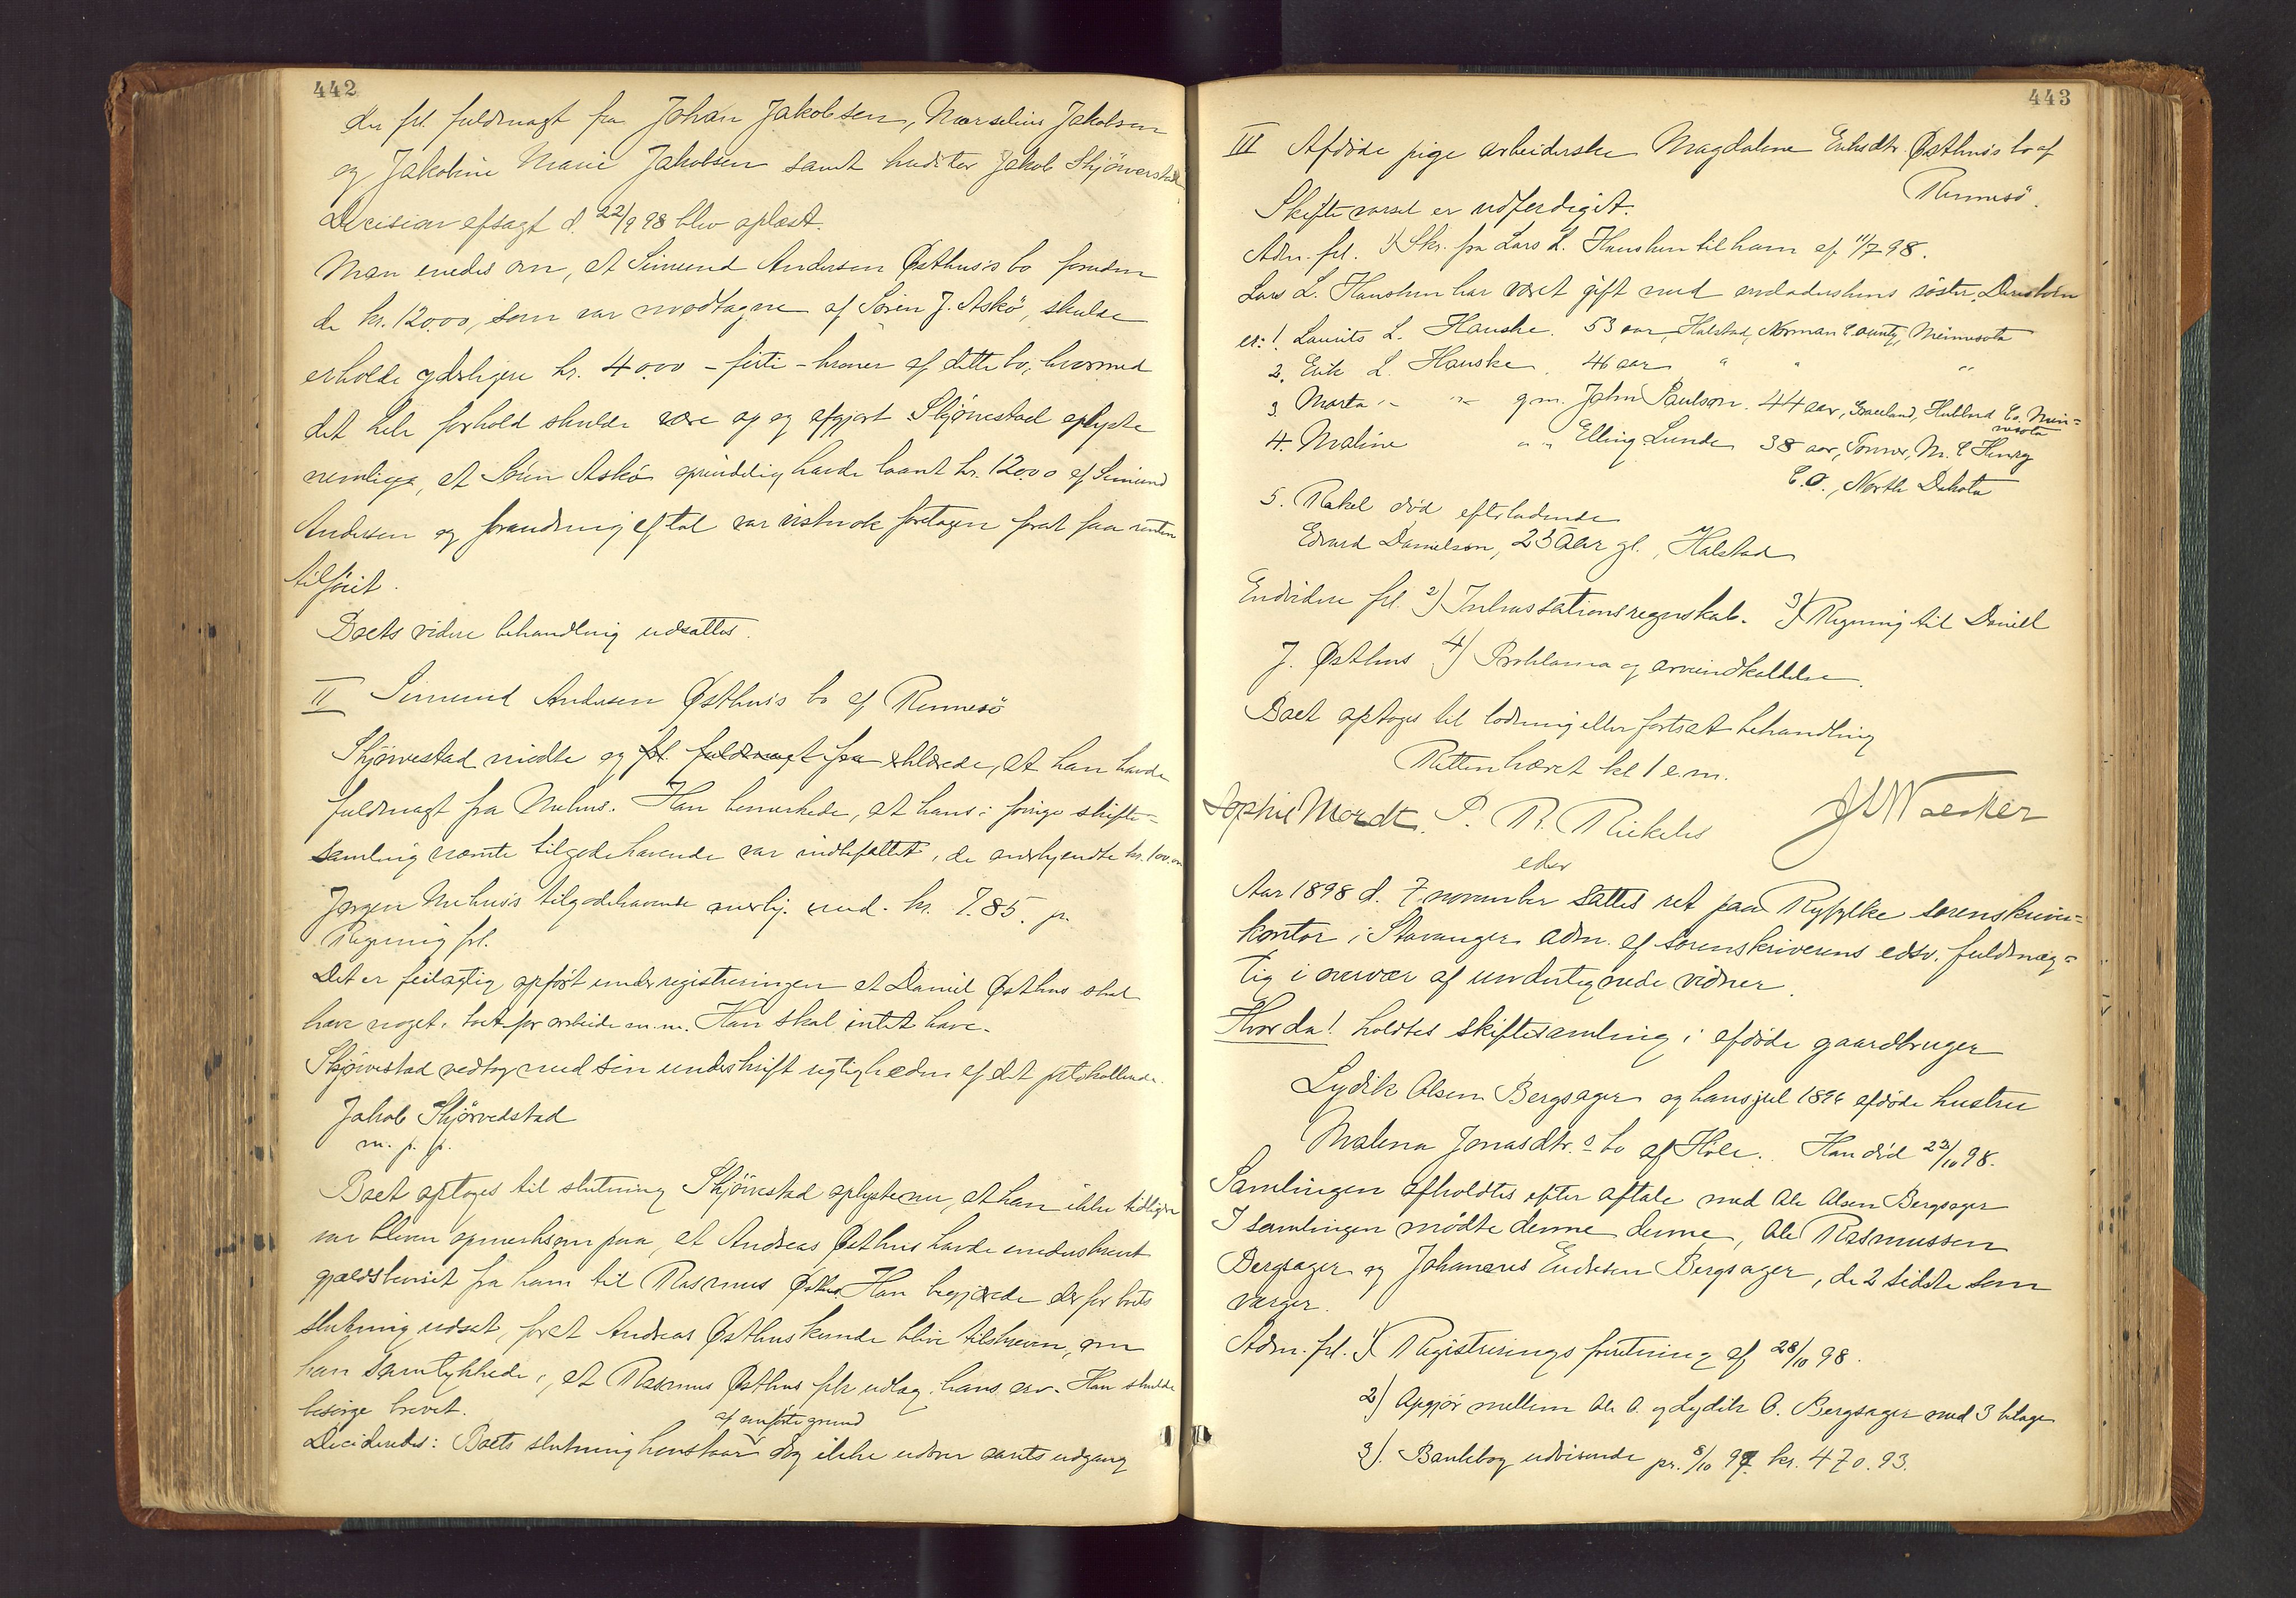 442
der frl. fuldmagt fra Johan Jakobsen, Marselius Jakobsen
og Jakobine Marie Jakobsen samt Jakob Skjörvestad
Decision afsagt d. 22/9 98 blev oplæst.
Man enedes om, at Simund Andersen Østhus's bo foruden
de kr. 120.00, som var modtagne af Sören J. Askö, skulde
erholde yderligere kr. 40.00 - firti - kroner af dette bo, hvormed
det hele forhold skulde være op og afgjort Skjörvestad oplyste
nemlig, at Sören Askö oprindelig havde laant kr. 120.00 af Simund
Andersen og forandring af tal var vistnok foretagen forat faa renten
tilföiet.
Boets videre behandling udsattes.
II Simund Andersen Østhus's bo af Rennesö
Skjörvestad mödte og frl. fuldmagt fra erklærede, at han havde
fuldmagt fra Nuhus. Han bemerkede, at hans i forrige skifte-
samling nævnte tilgodehavende var indbefattet i de anerkjendte kr. 100.00
Jörgen Nuhus's tilgodehavende anerkj. med kr. 7.85. pr.
Regning frl.
Det er feilagtig opfört under registreringen at Daniel Østhus skal
have noget i boet for arbeide m.m. Han skal intet have.
Skjörvestad vedtog med sin underskrift rigtigheden af det protokollerede.
Jakob Skjörvedstad
m. p. p.
Boet optoges til slutning Skjörvestad oplyste nu, at han ikke tidligere
var bleven opmerksom paa, at Andreas Østhus havde underskrevet
gjældsbeviset fra ham til Rasmus Østhus. Han begjærede derfor boets
slutning udsat, forat Andreas Østhus kunde blive tilskreven, om
han samtykkede i, at Rasmus Østhus fik udlæg i hans arv. Han skulde
besörge brevet.
af anförte grund
Decideredes: Boets slutning henstaar dog ikke udover aarets udgang
443
III Afdöde pige arbeiderske Magdalene Eriksdtr. Østhus's bo af
Rennesö.
Skiftevarsel er udferdiget.
Adm. frl. 1) Skr. fra Lars L. Hausken til ham af 11/7 98.
Lars L. Hausken har været gift med avladerskens söster. Deres börn
er: 1. Laurits L. Hauske. 53 aar, Halstad, Norman County, Minnesota
2. Erik L. Hauske. 46 aar " " "
3 Marta " " g. m. John Paulson. 44 aar, Graceland, Hubbard Co. Min-
nesota
4. Maline " " Elling Lunde 38 aar, Towner, Mc Henry
C.O., North Dakota
5. Rakel död efterladende
Edvard Danielson, 23 aar gl., Halstad
Endvidere frl. 2) Inkassationsregnskab. 3) Regning til Daniel
J. Østhus 4) Proklama og arveindkaldelse.
Boet optoges til lodning eller fortsat behandling
Retten hævet kl 1 e.m.
Sophie Mordt. P. R. Rickeles
edsv
Aar 1898 d. 7 november sattes ret paa Ryfylke sorenskriver-
kontor i Stavanger adm. af sorenskriverens edsv. fuldmæg-
tig i overvær af undertegnede vidner.
Hvorda! holdtes skiftesamling i afdöde gaardbruger
Lydik Olsen Bergsager og hans jul 1896 afdöde hustru
Malena Jonasdtr.s bo af Höle. Han död 23/10 98.
Samlingen afholdtes efter aftale med Ole Olsen Bergsager
I samlingen mödte denne denne, Ole Rasmussen
Bergsager og Johannes Endresen Bergsager, de 2 sidste som
værger.
Adm. frl. 1) Registreringsforretning af 28/10 98.
2) Opgjör mellem Ole O. og Lydik O. Bergsager med 3 bilage
3). Bankbog udvisende pr. 8/10 97 kr. 470.93.